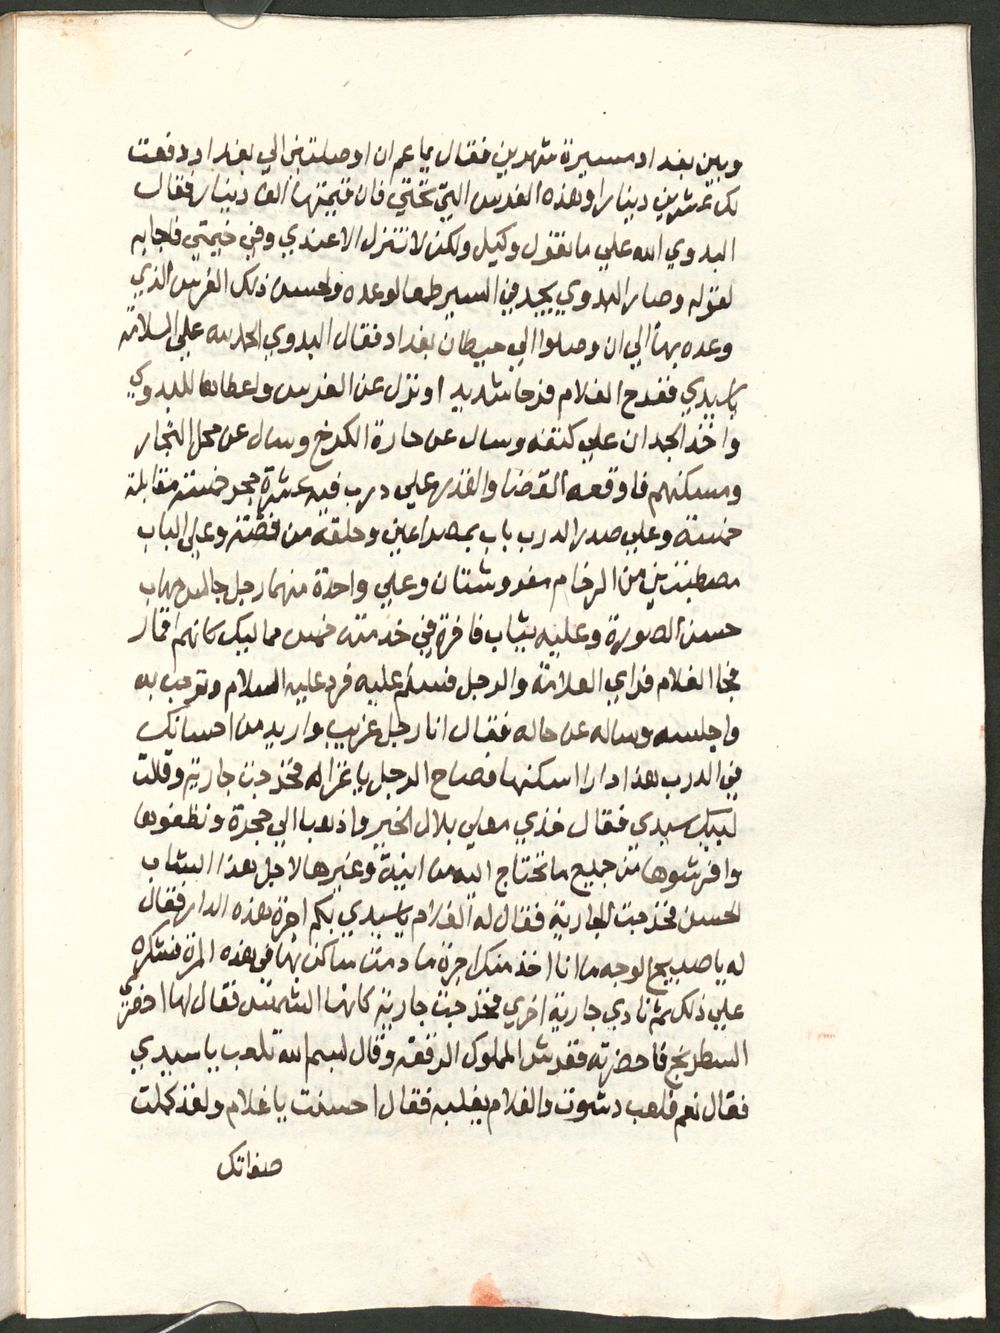 وبين بغداد مسيرة شهرين فقال يا عم ان اوصلتني الي بغداد دفعت
لك عشرين دينارا وهذه الفرس التي تحتي فان قيمتها الف دينار فقال
البدوي الله علي ما نقول وكيل ولكن لا تنزل الا عندي وفي خيمتي فاجابه
لقوله وصار البدوي يجد في السير طمعا لوعده ولحسن ذلك الفرس الذي
وعده بها الي ان وصلوا الي حيطان بغداد فقال البدوي الحمد لله علي السلامة
يا سيدي ففرح الغلام فرحا شديدا ونزل عن الفرس واعطاها للبدوي
واخذ الجدان علي كتفه وسال عن حارة الكرخ وسال عن محل التجار
ومسكنهم فاوقعه القضا والقدر علي درب فيه عشرة حجر خمسة مقابلة
خمسة وعلي صدر الدرب باب بمصراعين وحلقه من فضة وعلي الباب
مصطبتين من الرخام مفروشتان وعلي واحدة منهما رجل جالس مهاب
حسن الصورة وعليه ثياب فاخرة في خدمته خمس مماليك كانهم اقمار
فجا الغلام فراي العلامة والرجل فسلم عليه فرد عليه السلام وترحب به
واجلسه وساله عن حاله فقال انا رجل غريب واريد من احسانك
في الدرب هذا دارا اسكنها فصاح الرجل يا غزاله فخرجت جارية وقالت
لبيك سيدي فقال خذي معاي بلال الخير واذهب الي حجرة ونظفوها
وافرشوها من جميع ما تحتاج اليه من انية وغيرها لاجل هذا الشاب
الحسن فخرجت الجارية فقال له الغلام يا سيدي بكم اجرة هذه الدار فقال
له يا صبيح الوجه ما انا اخذ منك اجرة ما دمت ساكنا بها في هذه المرة فشكره
علي ذلك ثم نادي جارية اخري فخرجت جارية كانها الشمس فقال لها احضري
السطرنج فاحضرته ففرش المملوك الرقعة وقال بسم الله تلعب يا سيدي
فقال نعم فلعب دشوت والغلام يغلبه فقال احسنت يا غلام ولقد كملت
صفاتك